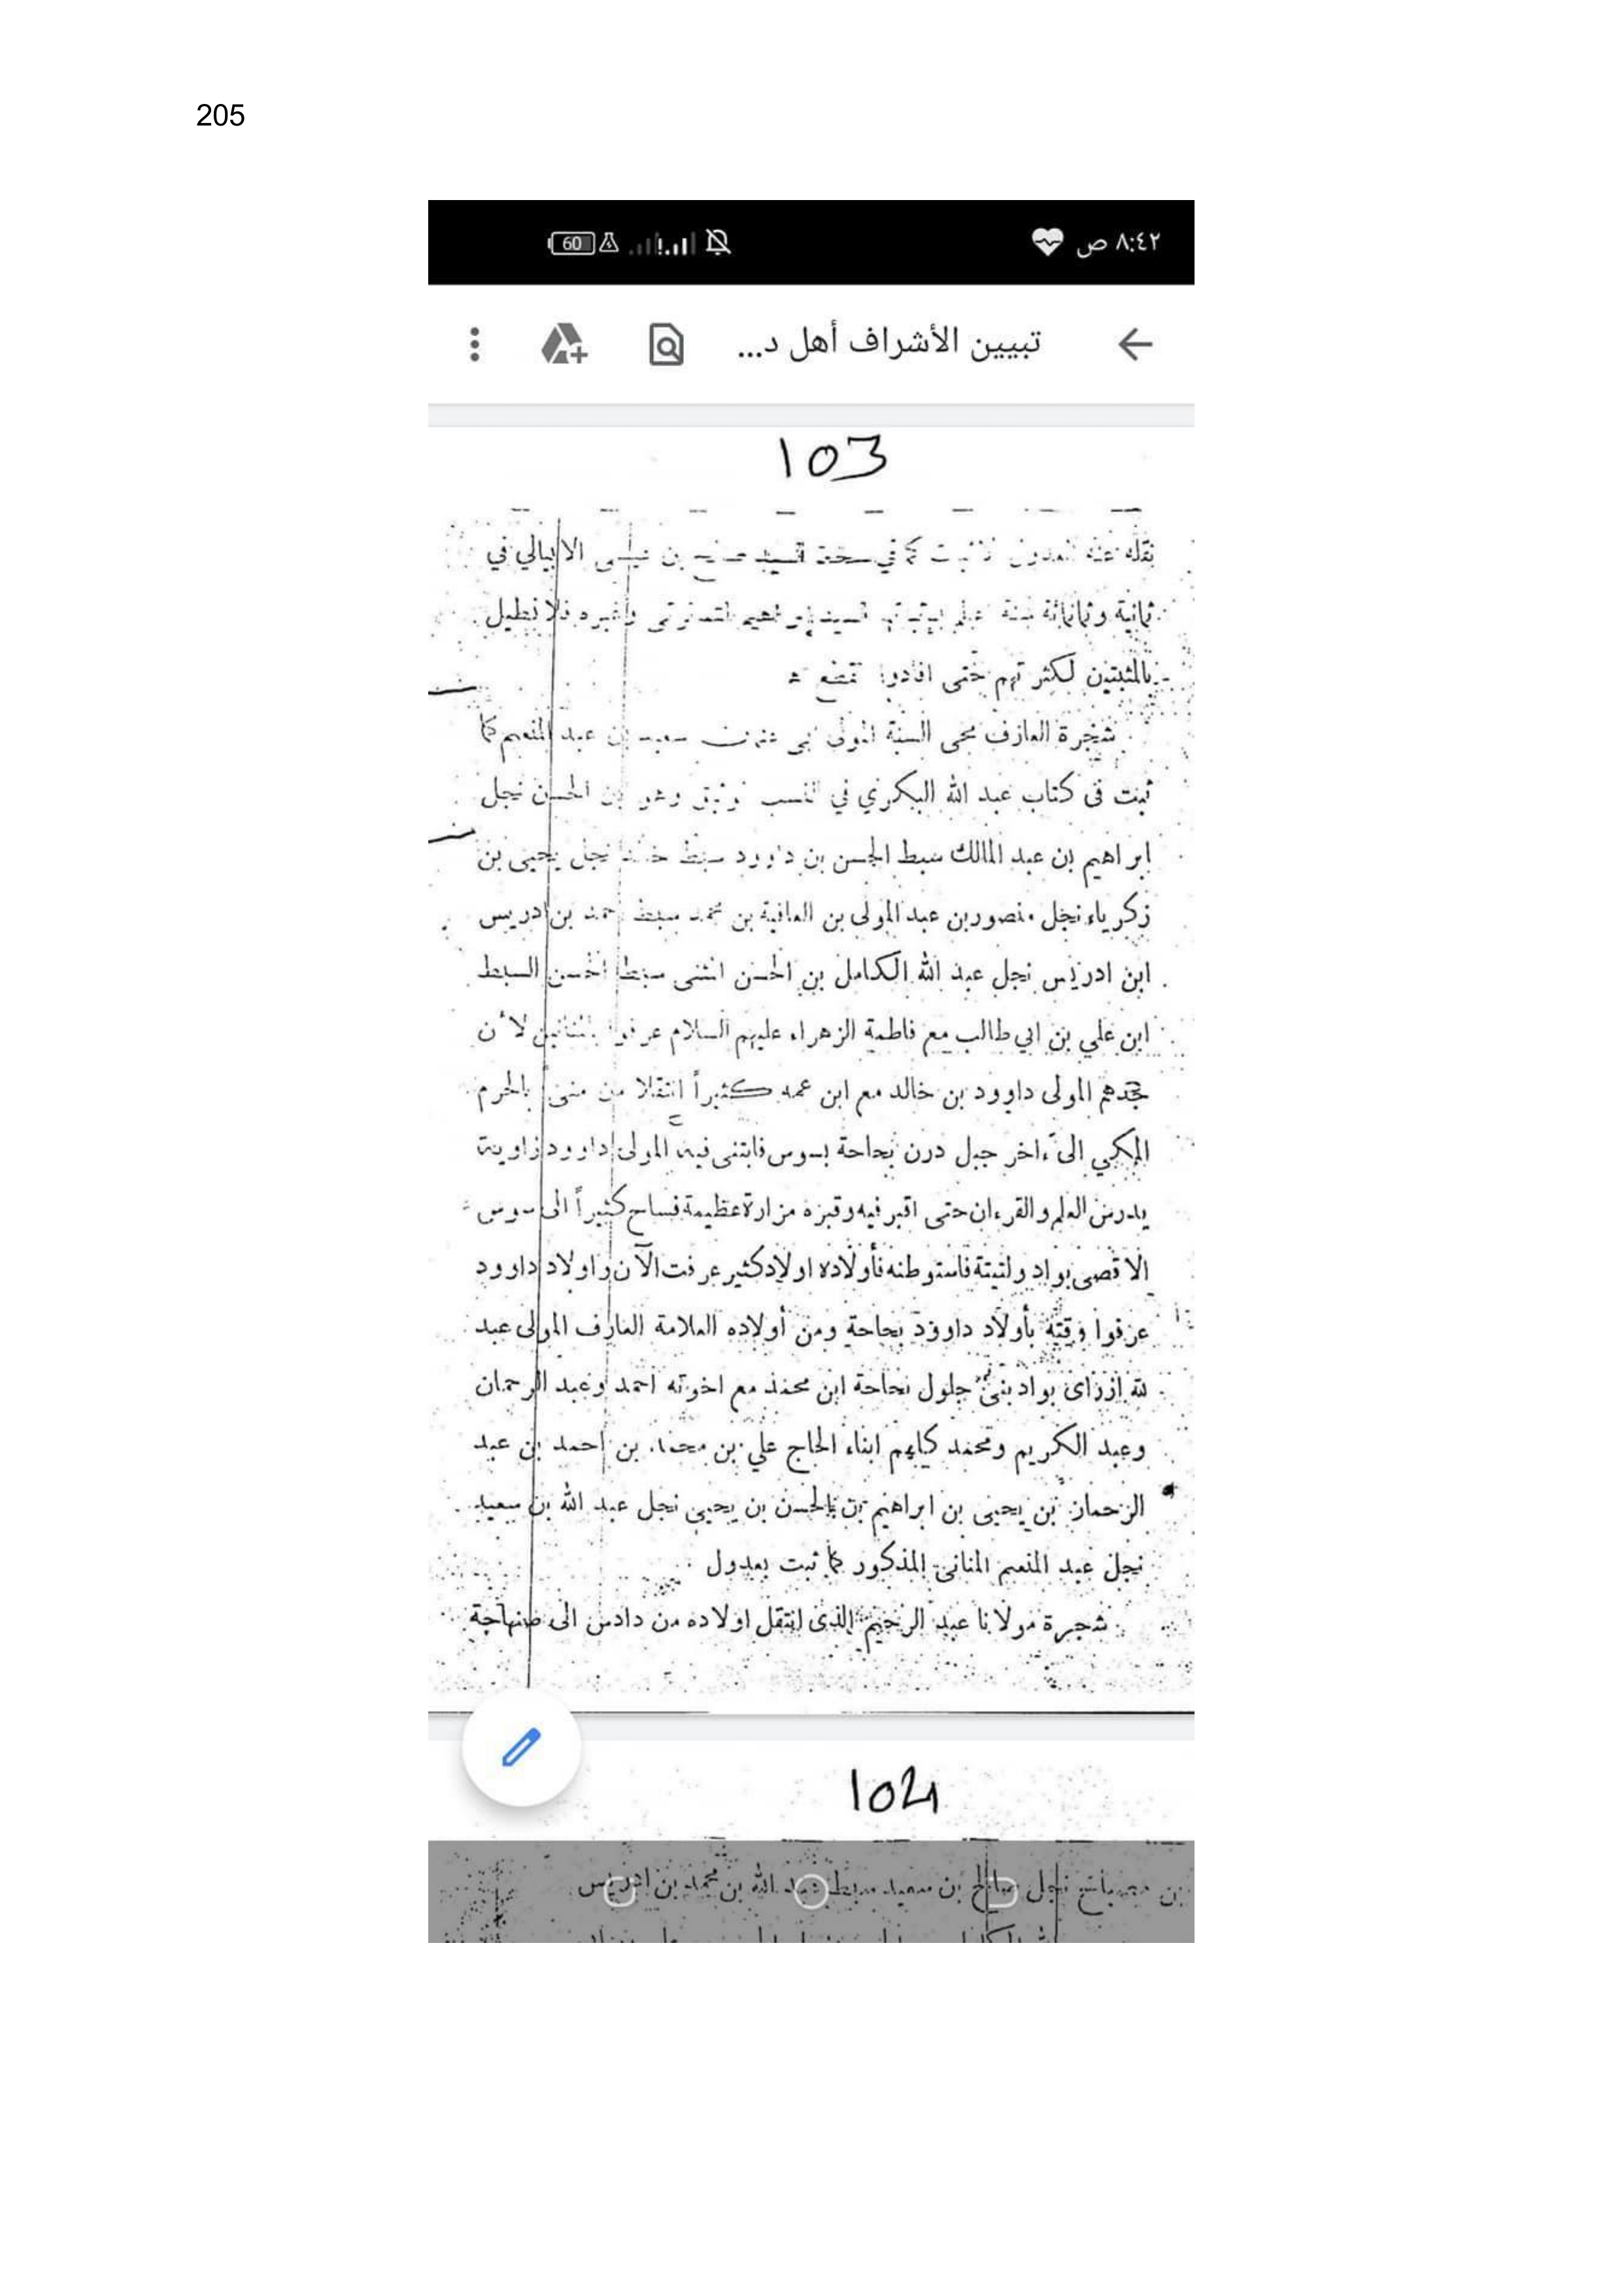 205
٨:٤٢ ص
60
تبيين الأشراف أهل د...
103
نقله عنه العدول في الابيالي بن
ثمانية وثمانمائة سنة وغيره فلا نطيل
بالمثبتين لكثرتهم حتى افادوا
شجرة العارف محى السنة المولى سعيد بن عبد المنعم كما
ثبت فى كتاب عبد الله البكري في وهو بن الحسن نجل
ابراهيم بن عبد المالك سبط الحسن بن داوود سبط نجل يحيى بن
زكرياء نجل منصور بن عبد المولى بن العافية بن محمد سبط احمد بن ادريس
ابن ادريس نجل عبد الله الكامل بن الحسن المثنى سبط الحسن السبط
ابن علي بن ابي طالب مع فاطمة الزهراء عليهم السلام عرفوا لأن
جدهم المولى داوود بن خالد مع ابن عمه كثيراً انتقلا من منى بالحرم
المكي الى ءاخر جبل درن بحاحة بسوس فابتنى فيه المولى داوود زاوية
يدرس العلم والقرءان حتى اقبر فيه وقبره مزارة عظيمة فساح كثيراً الى سوس
الاقصى بواد ولتيتة فاستوطنه فأولاده اولاد كثير عرفت الآن واولاد داوود
عرفوا وقته بأولاد داوود بحاحة ومن أولاده العلامة العارف المولى عبد
لله ازراى بواد بنى جلول بحاحة ابن محمد مع اخوته احمد وعبد الرحمان
وعبد الكريم ومحمد كلهم ابناء الحاج علي بن محمد بن احمد بن عبد
الرحمان بن يحيى بن ابراهيم بن الحسن بن يحيى نجل عبد الله بن سعيد
نجل عبد المنعم المنانى المذكور كما ثبت بعدول
شجرة مولانا عبد الرحيم الذى انتقل اولاده من دادس الى صنهاجة
104
بن نجل صالح بن سعيد سبط عبد الله بن محمد بن ادريس